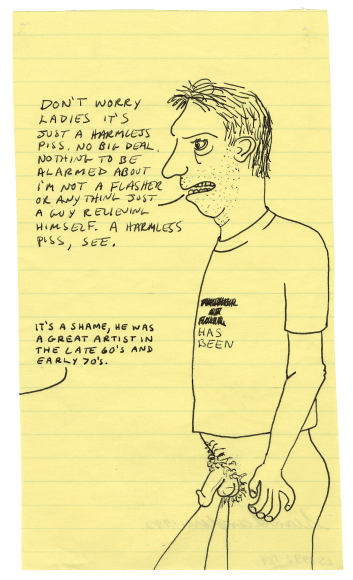 DON'T WORRY
LADIES IT'S
JUST A HARMLESS
PISS. NO BIG DEAL.
NOTHING TO BE
ALARMED ABOUT
I'M NOT A FLASHER
OR ANYTHING JUST
A GUY RELIEVING
HIMSELF. A HARMLESS
PISS, SEE.
HAS
BEEN
IT'S A SHAME, HE WAS
A GREAT ARTIST IN
THE LATE 60'S AND
EARLY 70'S.